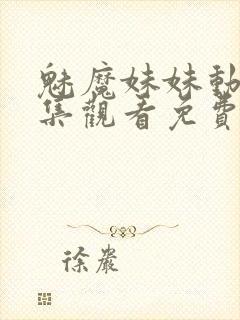 魅魔妹妹動
集觀看免費
徐嚴